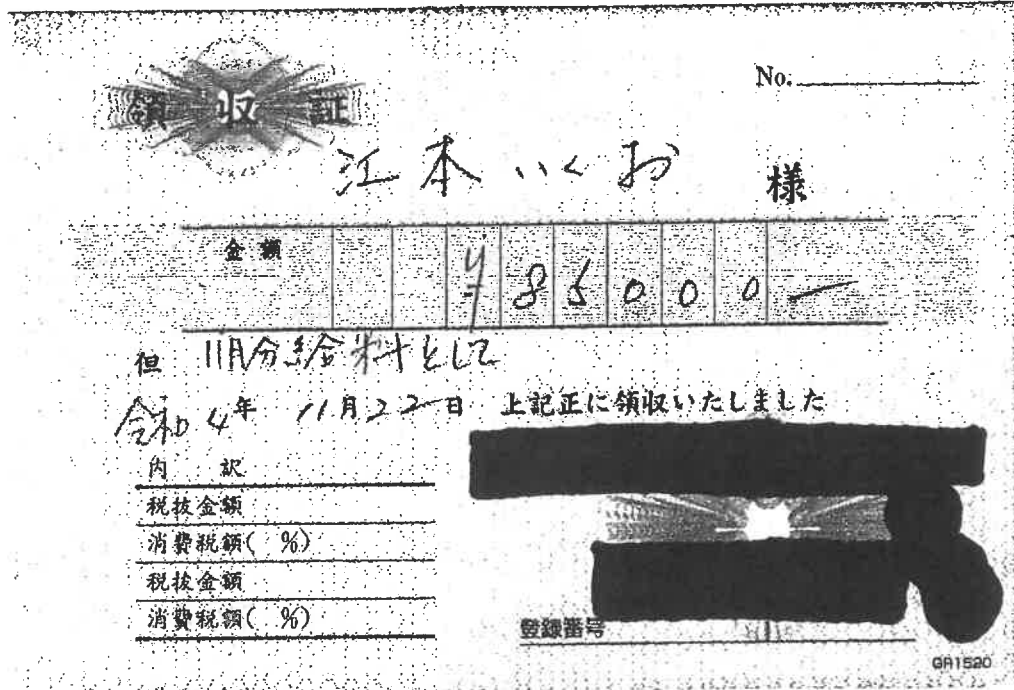 No.
領収証
江本いくお 様
金額 ¥85000—
但 11月分給料として
令和4年 11月22日 上記正に領収いたしました
内 訳
税抜金額
消費税額( %)
税抜金額
消費税額( %)
登録番号
GR1520